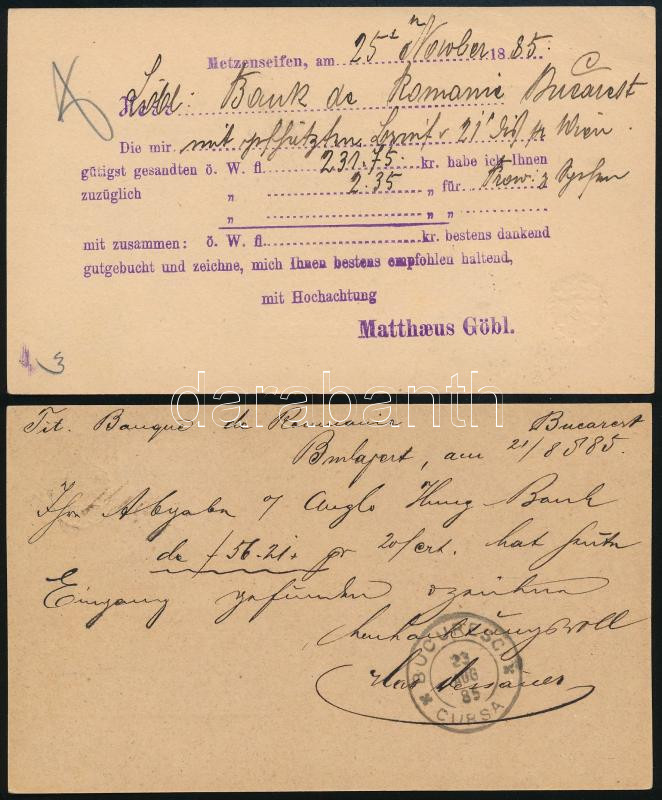 Metzenseifen, am 25t Nowber 1885.
Löbl. Bank de Romanie Bucarest
Die mir mit geschätztem
21t pr Wien
gütigst gesandten ö. W. fl. 231.75. kr. habe ich Ihnen
zuzüglich „ 2.35 „ für Prov: & Spesen
„ „ „
mit zusammen: ö. W. fl. kr. bestens dankend
gutgebucht und zeichne, mich Ihnen bestens empfohlen haltend,
mit Hochachtung
Matthæus Göbl.
4 3
darabanth
Tit. Banque de Roumanie Bucarest
Budapest, am 21/8 85.
Ihre Abgabe % Anglo Hung. Bank
de f 56.21 pr 20/crt. hat heute
Eingang gefunden &zeichne
hochachtungsvoll
BUCURESCI
23
AUG
85
CURSA